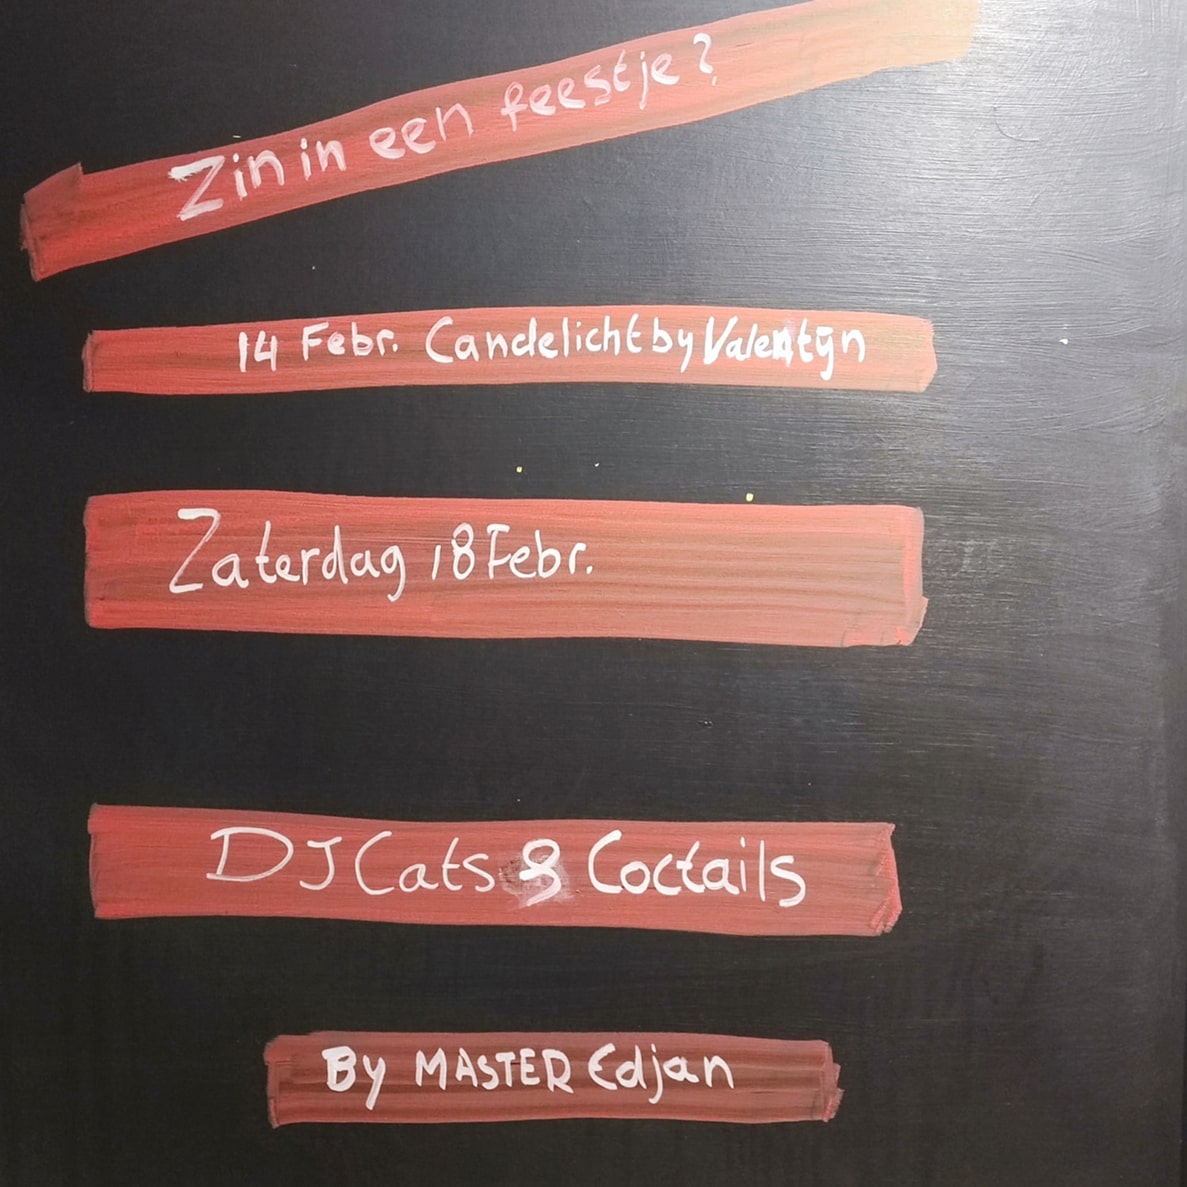 Zin in een feestje?
14 Febr. Candelicht by Valentijn
Zaterdag 18 Febr.
DJ Cats & Coctails
By MASTER Edjan